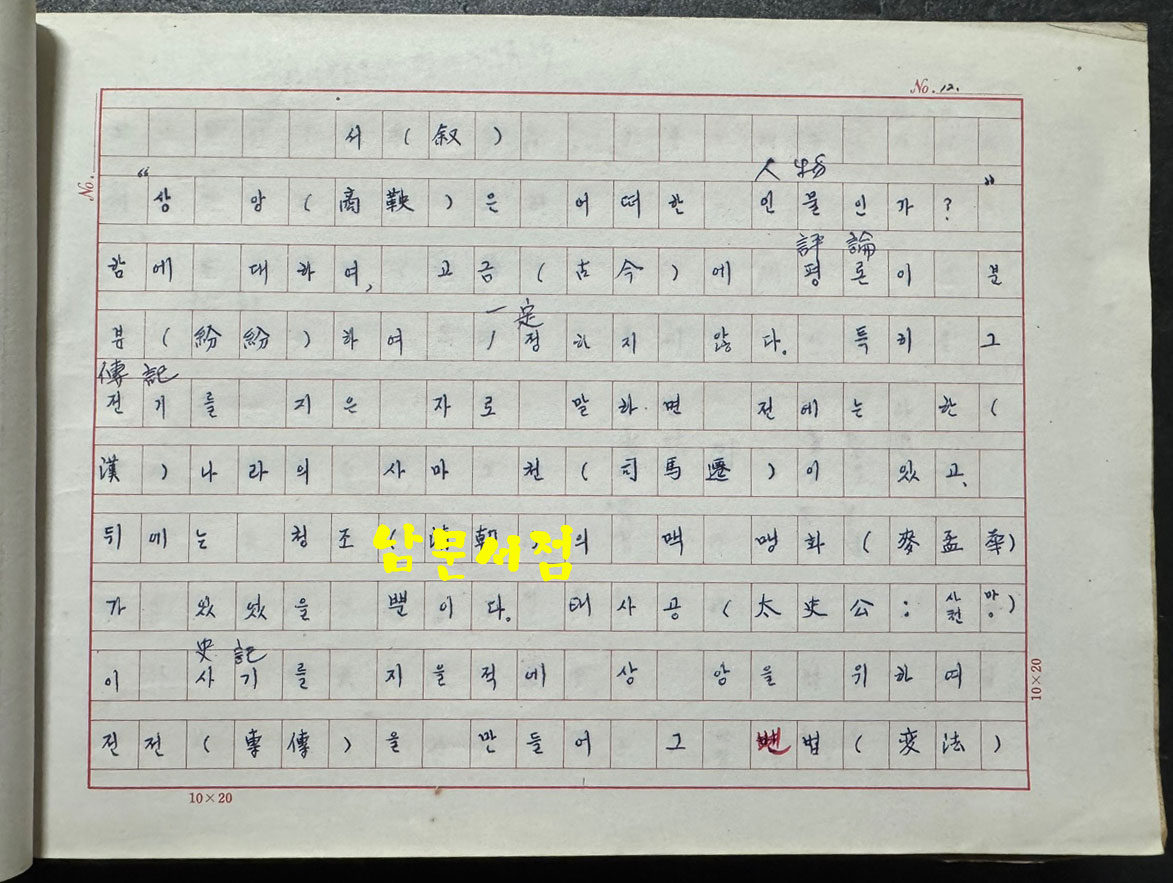 No. 12.
No.
서(叙)
人物
“상 앙(商鞅)은 어떠한 인물인가?”
評論
함에 대하여, 고금(古今)에 평론이 분
一定
분(紛紛)하여 1정하지 않다. 특히 그
傳記
전기를 지은 자로 말하면 전에는 한(
漢)나라의 사마 천(司馬遷)이 있고,
뒤에는 청조 의 맥 맹화(麥孟華)
남문서점
가 있었을 뿐이다. 태사공(太史公: 사마천)
史記
이 사기를 지을적에 상 앙을 위하여
전전(專傳)을 만들어 그 변법(変法)
10×20
10×20